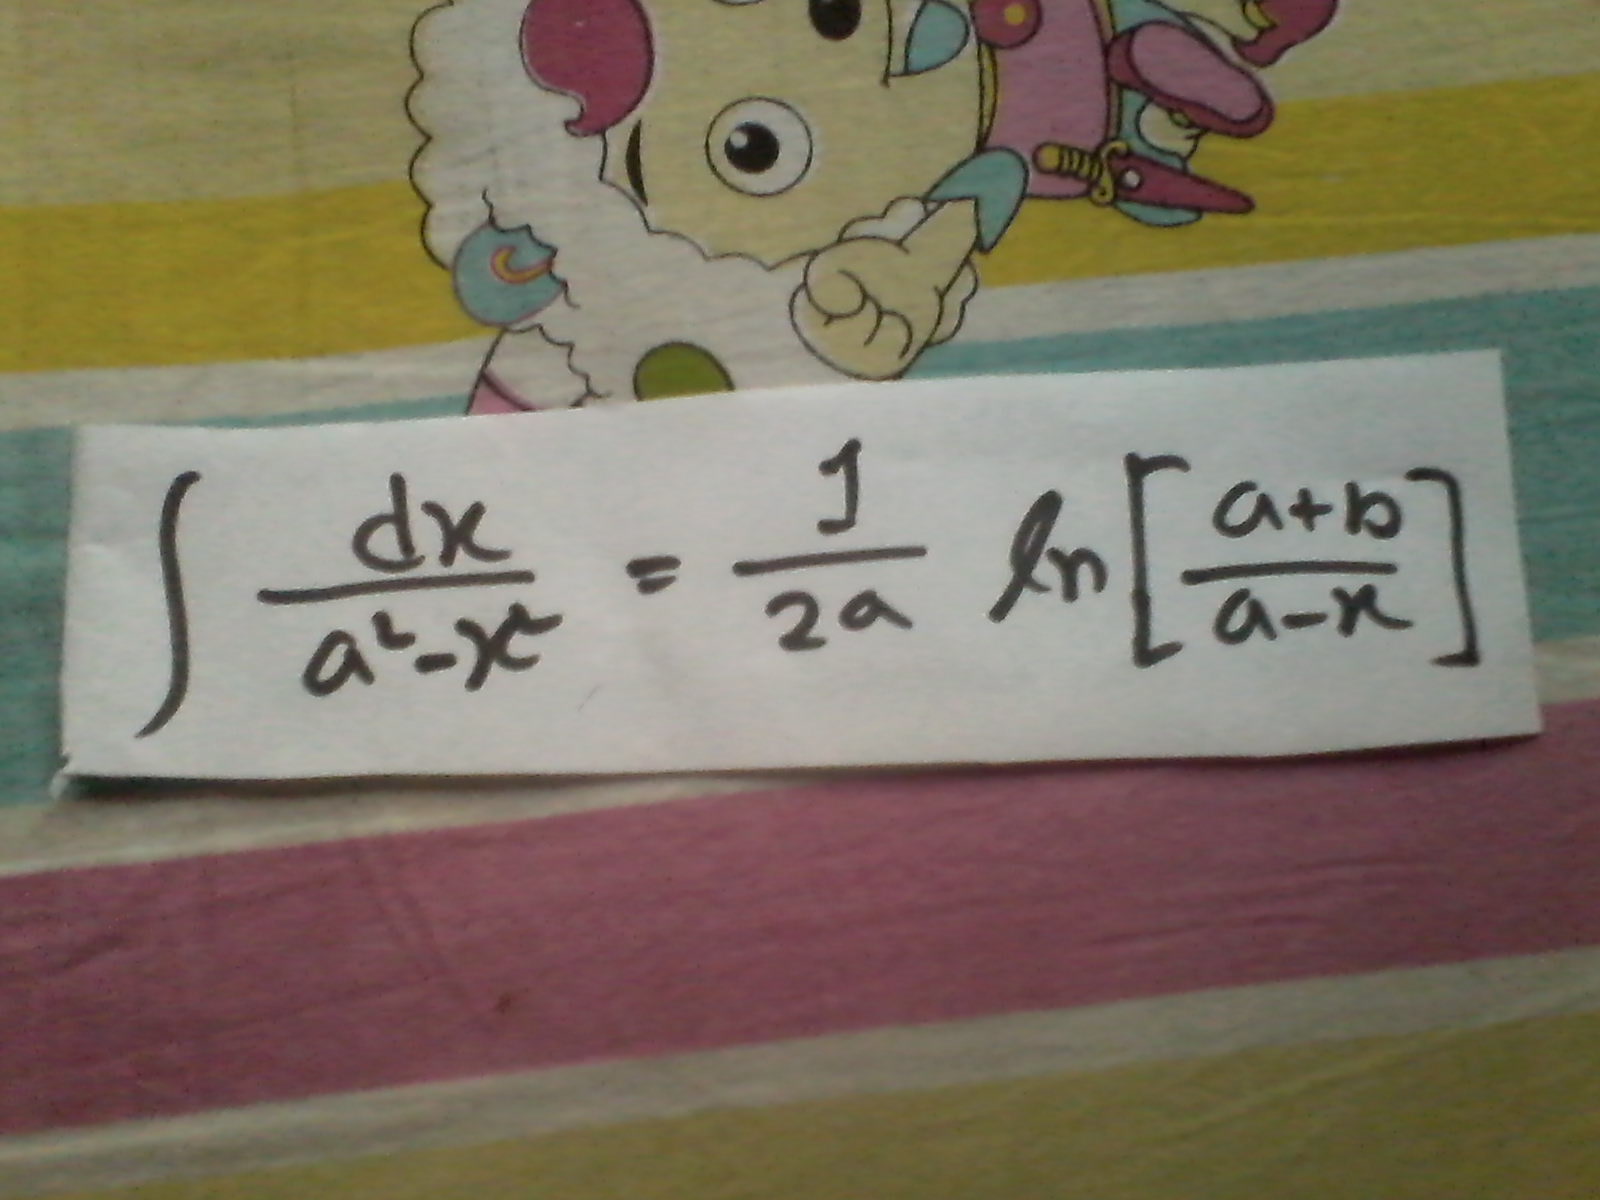 ∫ dx/(a²-x²) = 1/(2a) ln[(a+b)/(a-x)]